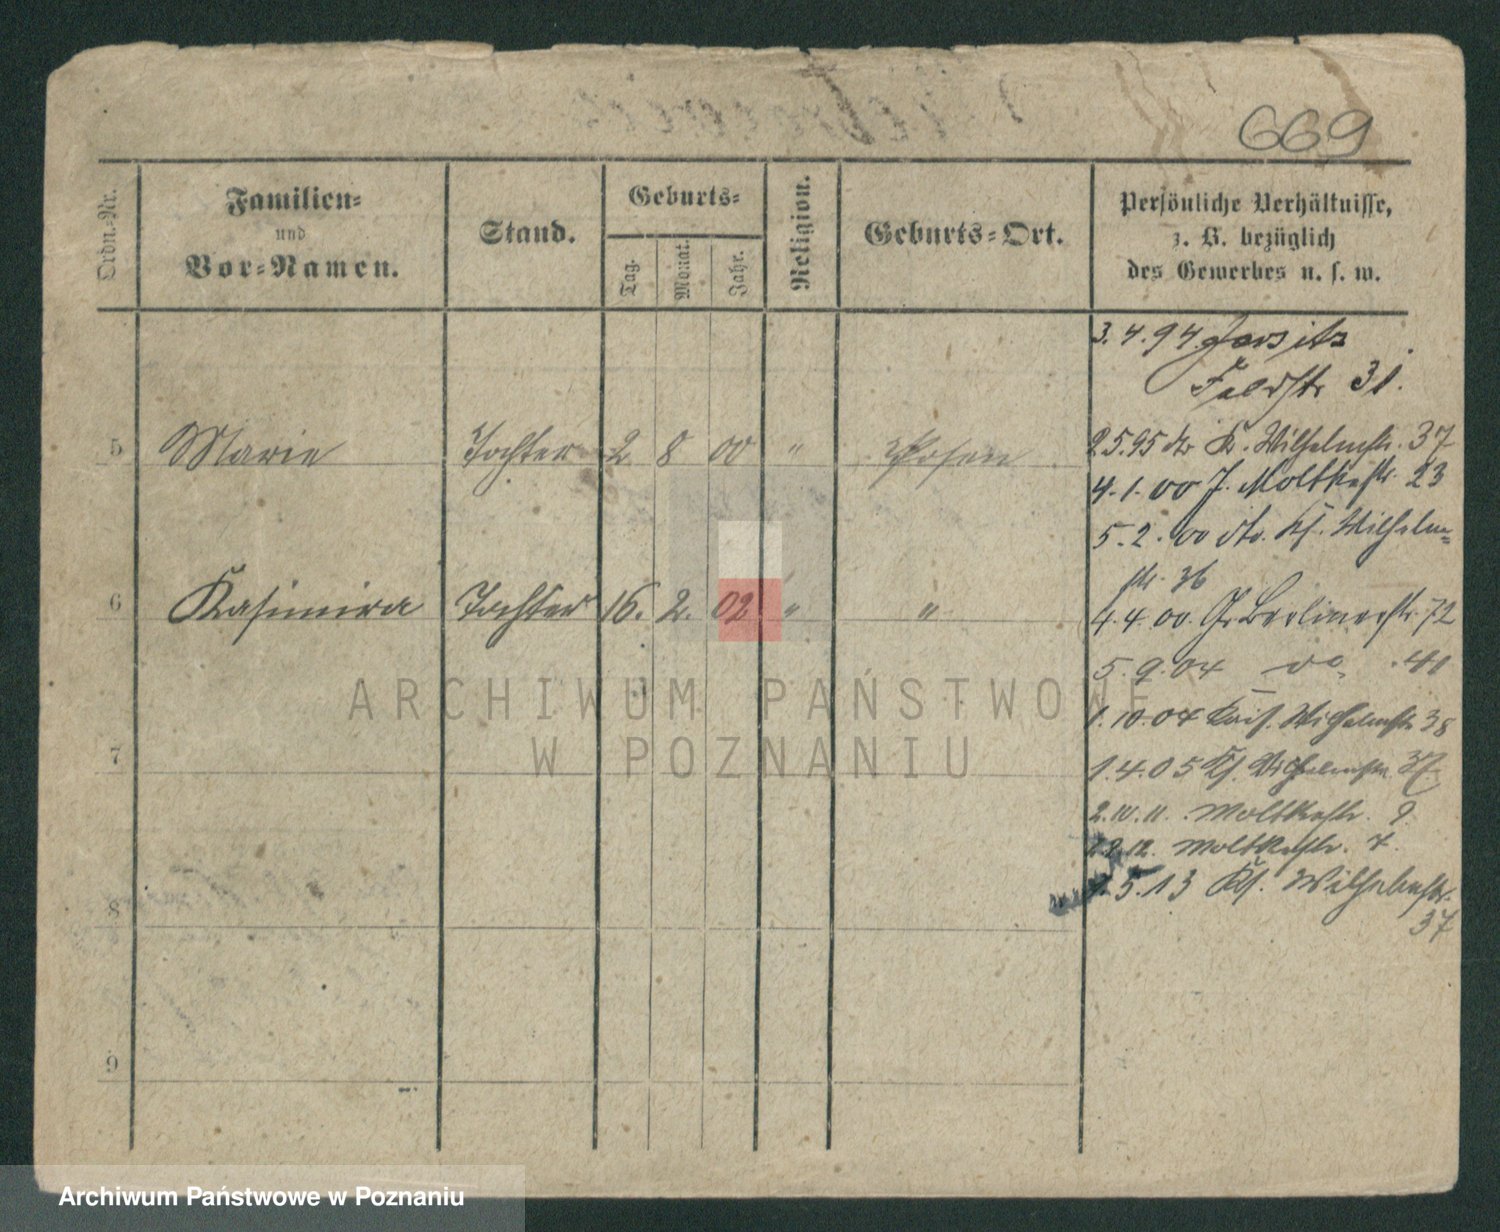 669
Ordn.-Nr.
Familien-
und
Vor-Namen.
Stand.
Geburts-
Tag.
Monat.
Jahr.
Religion.
Geburts-Ort.
Persönliche Verhältnisse,
z. B. bezüglich
des Gewerbes u. s. w.
3. 4. 94 Jersitz
Feldstr 31.
5 Marie Tochter 2 8 00 " Posen
25.95 K. Wilhelmstr. 37
4. 1. 00 J. Moltkestr. 23
5. 2. 00 dto. Ks. Wilhelm-
str. 36
6 Kasimira Tochter 16. 2. 02 " "
4. 4. 00. Gr Berlinerstr. 72
5. 9. 04 do. 41
1. 10. 04 Kais. Wilhelmstr 38
ARCHIWUM PAŃSTWOWE
W POZNANIU
7
1. 4. 05 Ks. Wilhelmstr. 37.
2. 10. 11. Moltkestr. 9.
12. Moltkestr. 7.
5. 13 Ks. Wilhelmstr.
37
8
9
Archiwum Państwowe w Poznaniu